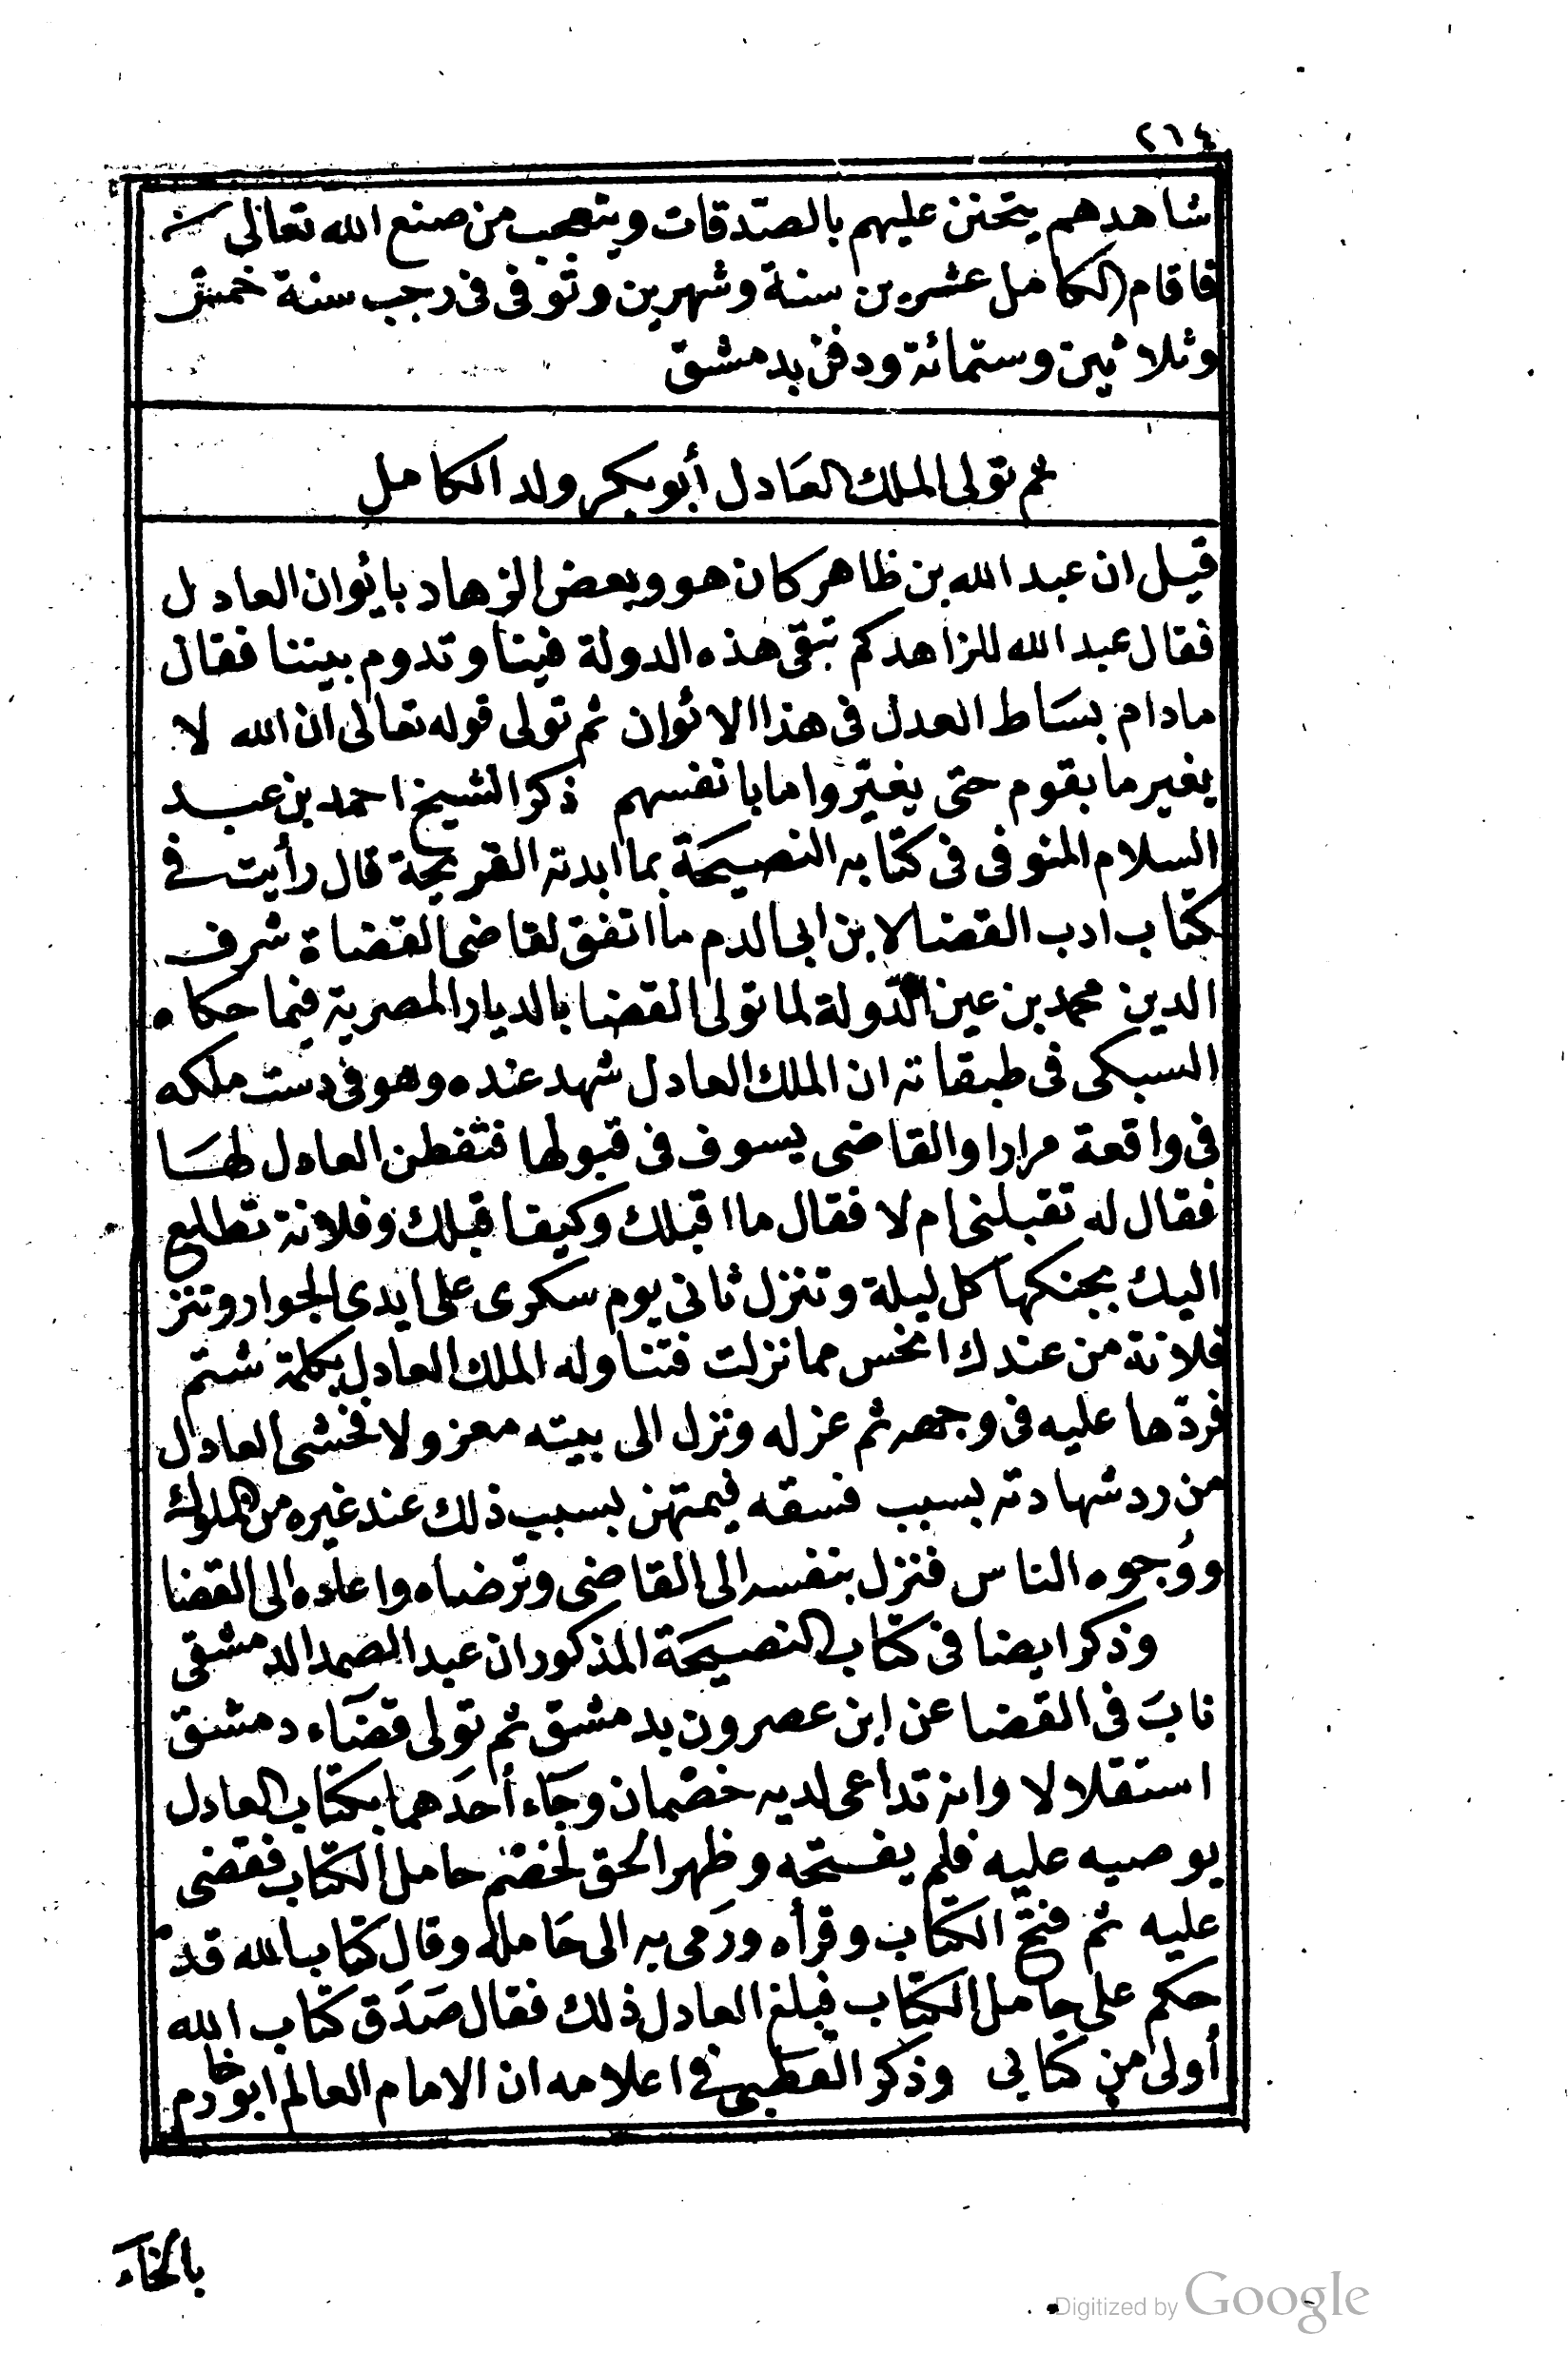 ٢٦٤
شاهدهم يتحنن عليهم بالصّدقات ويتعجب من صنع الله تعالى
فاقام الكامل عشرين سنة وشهرين وتوفى فى رجب سنة خمس
وثلاثين وستمائة ودفن بدمشق
ثم تولى الملك العَادل أبو بكر ولد الكامل
قيل ان عبد الله بن ظاهر كان هو وبعض الزهاد بايوان العادل
فقال عبد الله للزاهد كم تبقى هذه الدولة فينا وتدوم بيننا فقال
مادام بسَاط العدل فى هذا الائوان ثم تولى قوله تعالى ان الله لا
يغير ما بقوم حتى يغيّروا ما بانفسهم ذكر الشيخ احمد بن عبد
السلام المنوفى فى كتابه النصيحَة بما ابدته القريحة قال رأيت فى
كتاب ادب القضا لابن ابى الدم ما اتفق لقاضى القضاة شرف
الدين محمد بن عين الدّولة لما تولى القضا بالديار المصرية فيما حكاه
السبكى فى طبقاته ان الملك العادل شهد عنده وهو فى دست ملكه
فى واقعة مرارا والقاضى يسوف فى قبولها فتفطن العادل لهَا
فقال له تقبلنى ام لا فقال ما اقبلك وكيف اقبلك وفلانة تطلع
اليك بجنكها كل ليلة وتنزل ثانى يوم سكرى على ايدى الجوار وتنز
فلانة من عندك انحس مما نزلت فتناوله الملك العادل بكلمة شتم
فردّها عليه فى وجهه ثم عزله ونزل الى بيته معزولا فخشى العادل
من رد شهادته بسبب فسقه فيمتهن بسبب ذلك عند غيره من الملوك
ووُجوه الناس فنزل بنفسه الى القاضى وترضاه واعاده الى القضا
وذكر ايضا فى كتاب النصيحَة المذكور ان عبد الصمد الدمشقى
نابَ فى القضا عن ابن عصرون بدمشق ثم تولى قضَاء دمشق
استقلالا وانه تداعى لديه خصْمان وجَاء أحدَهما بكتاب العادل
يوصيه عليه فلم يفتحه وظهر الحق لخصم حامل الكتاب فقضى
عليه ثم فتح الكتاب وقرأه ورَمى به الى حَامله وقال كتاب الله قد
حكم على حامل الكتاب فبلغ العادل ذلك فقال صَدَق كتاب الله
أولى من كتابى وذكر القطبى فى اعلامه ان الامام العالم ابو خادم
بالخاء
Digitized by Google